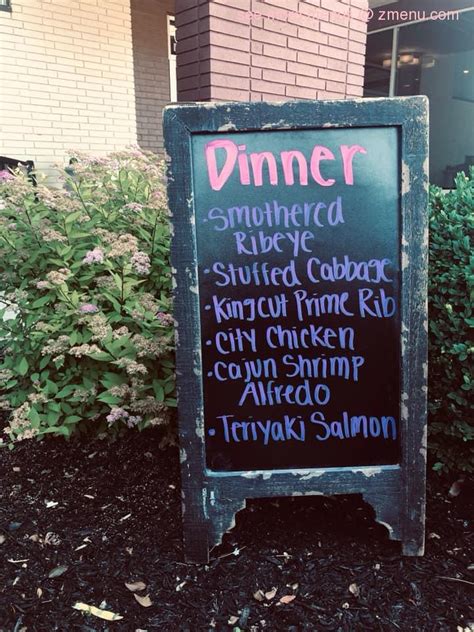 @ zmenu.com
Dinner
• Smothered
Ribeye
• Stuffed Cabbage
• Kingcut Prime Rib
• City Chicken
• Cajun Shrimp
Alfredo
• Teriyaki Salmon